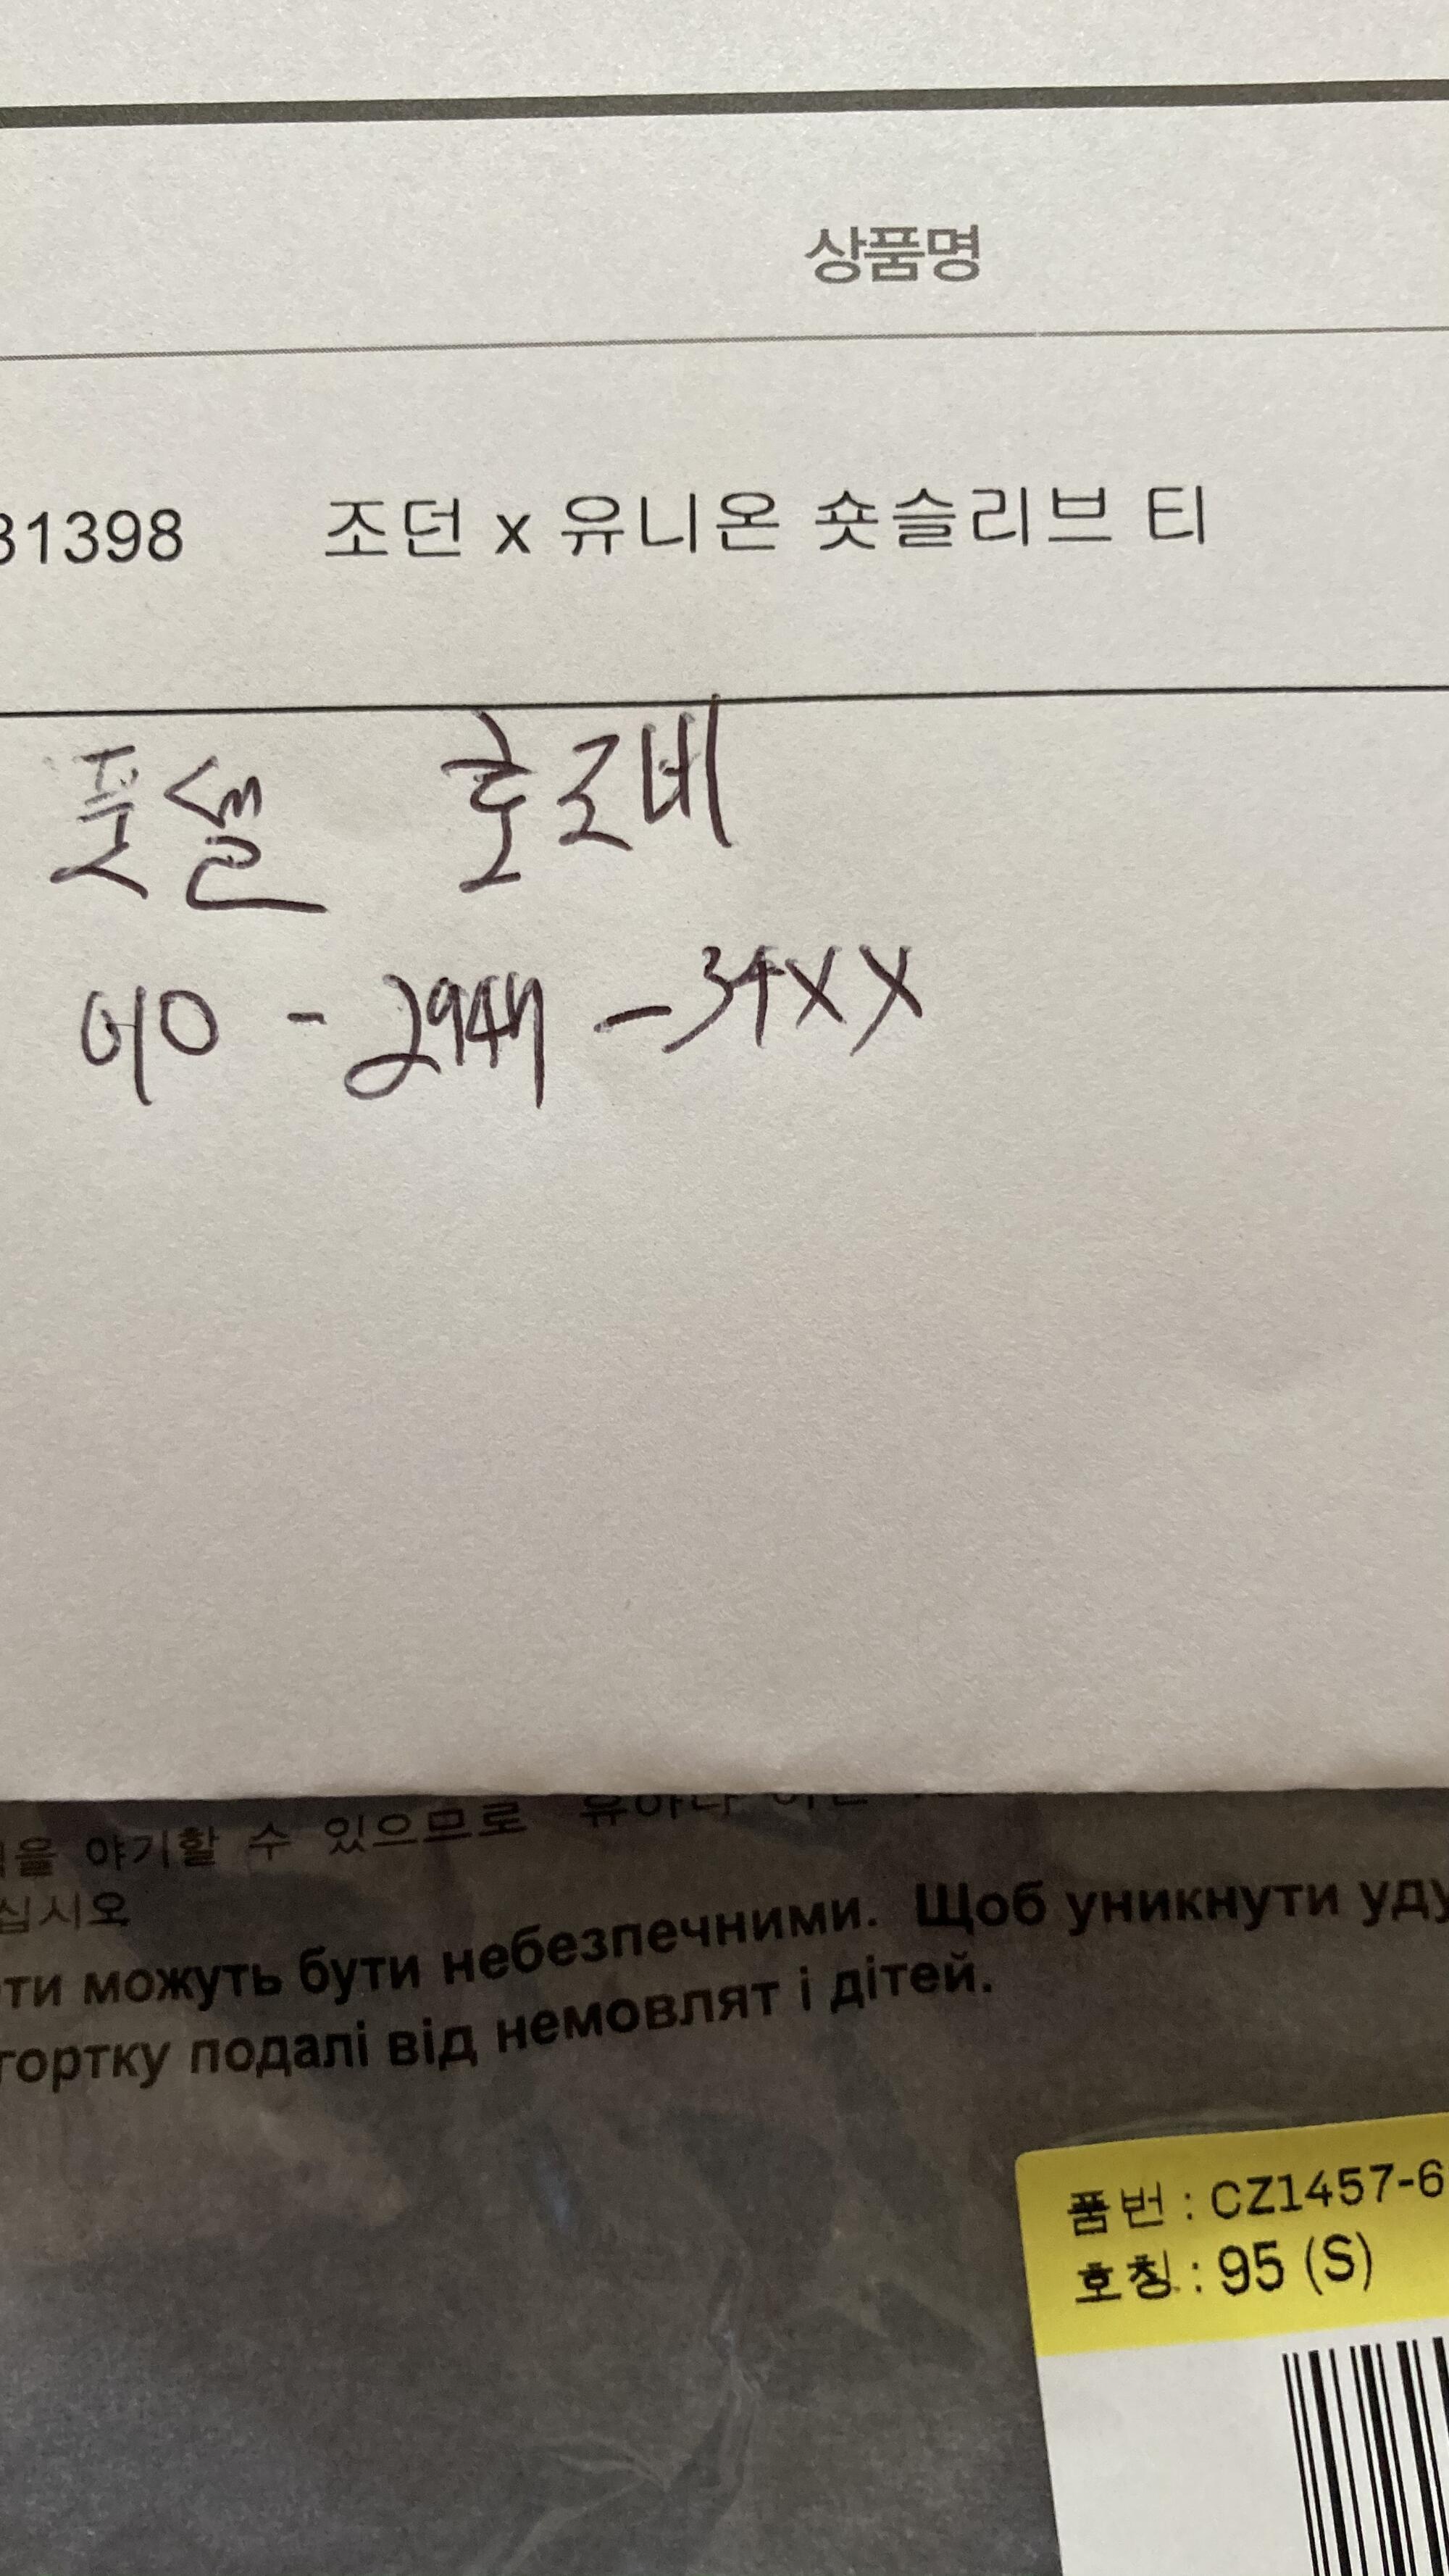 상품명
31398 조던 x 유니온 숏슬리브 티
풋셀 훈조비
010 - 2947 - 34XX
을 야기할 수 있으므로 유아나
십시오
ти можуть бути небезпечними. Щоб уникнути уду
гортку подалі від немовлят і дітей.
품번 : CZ1457-6
호칭 : 95 (S)